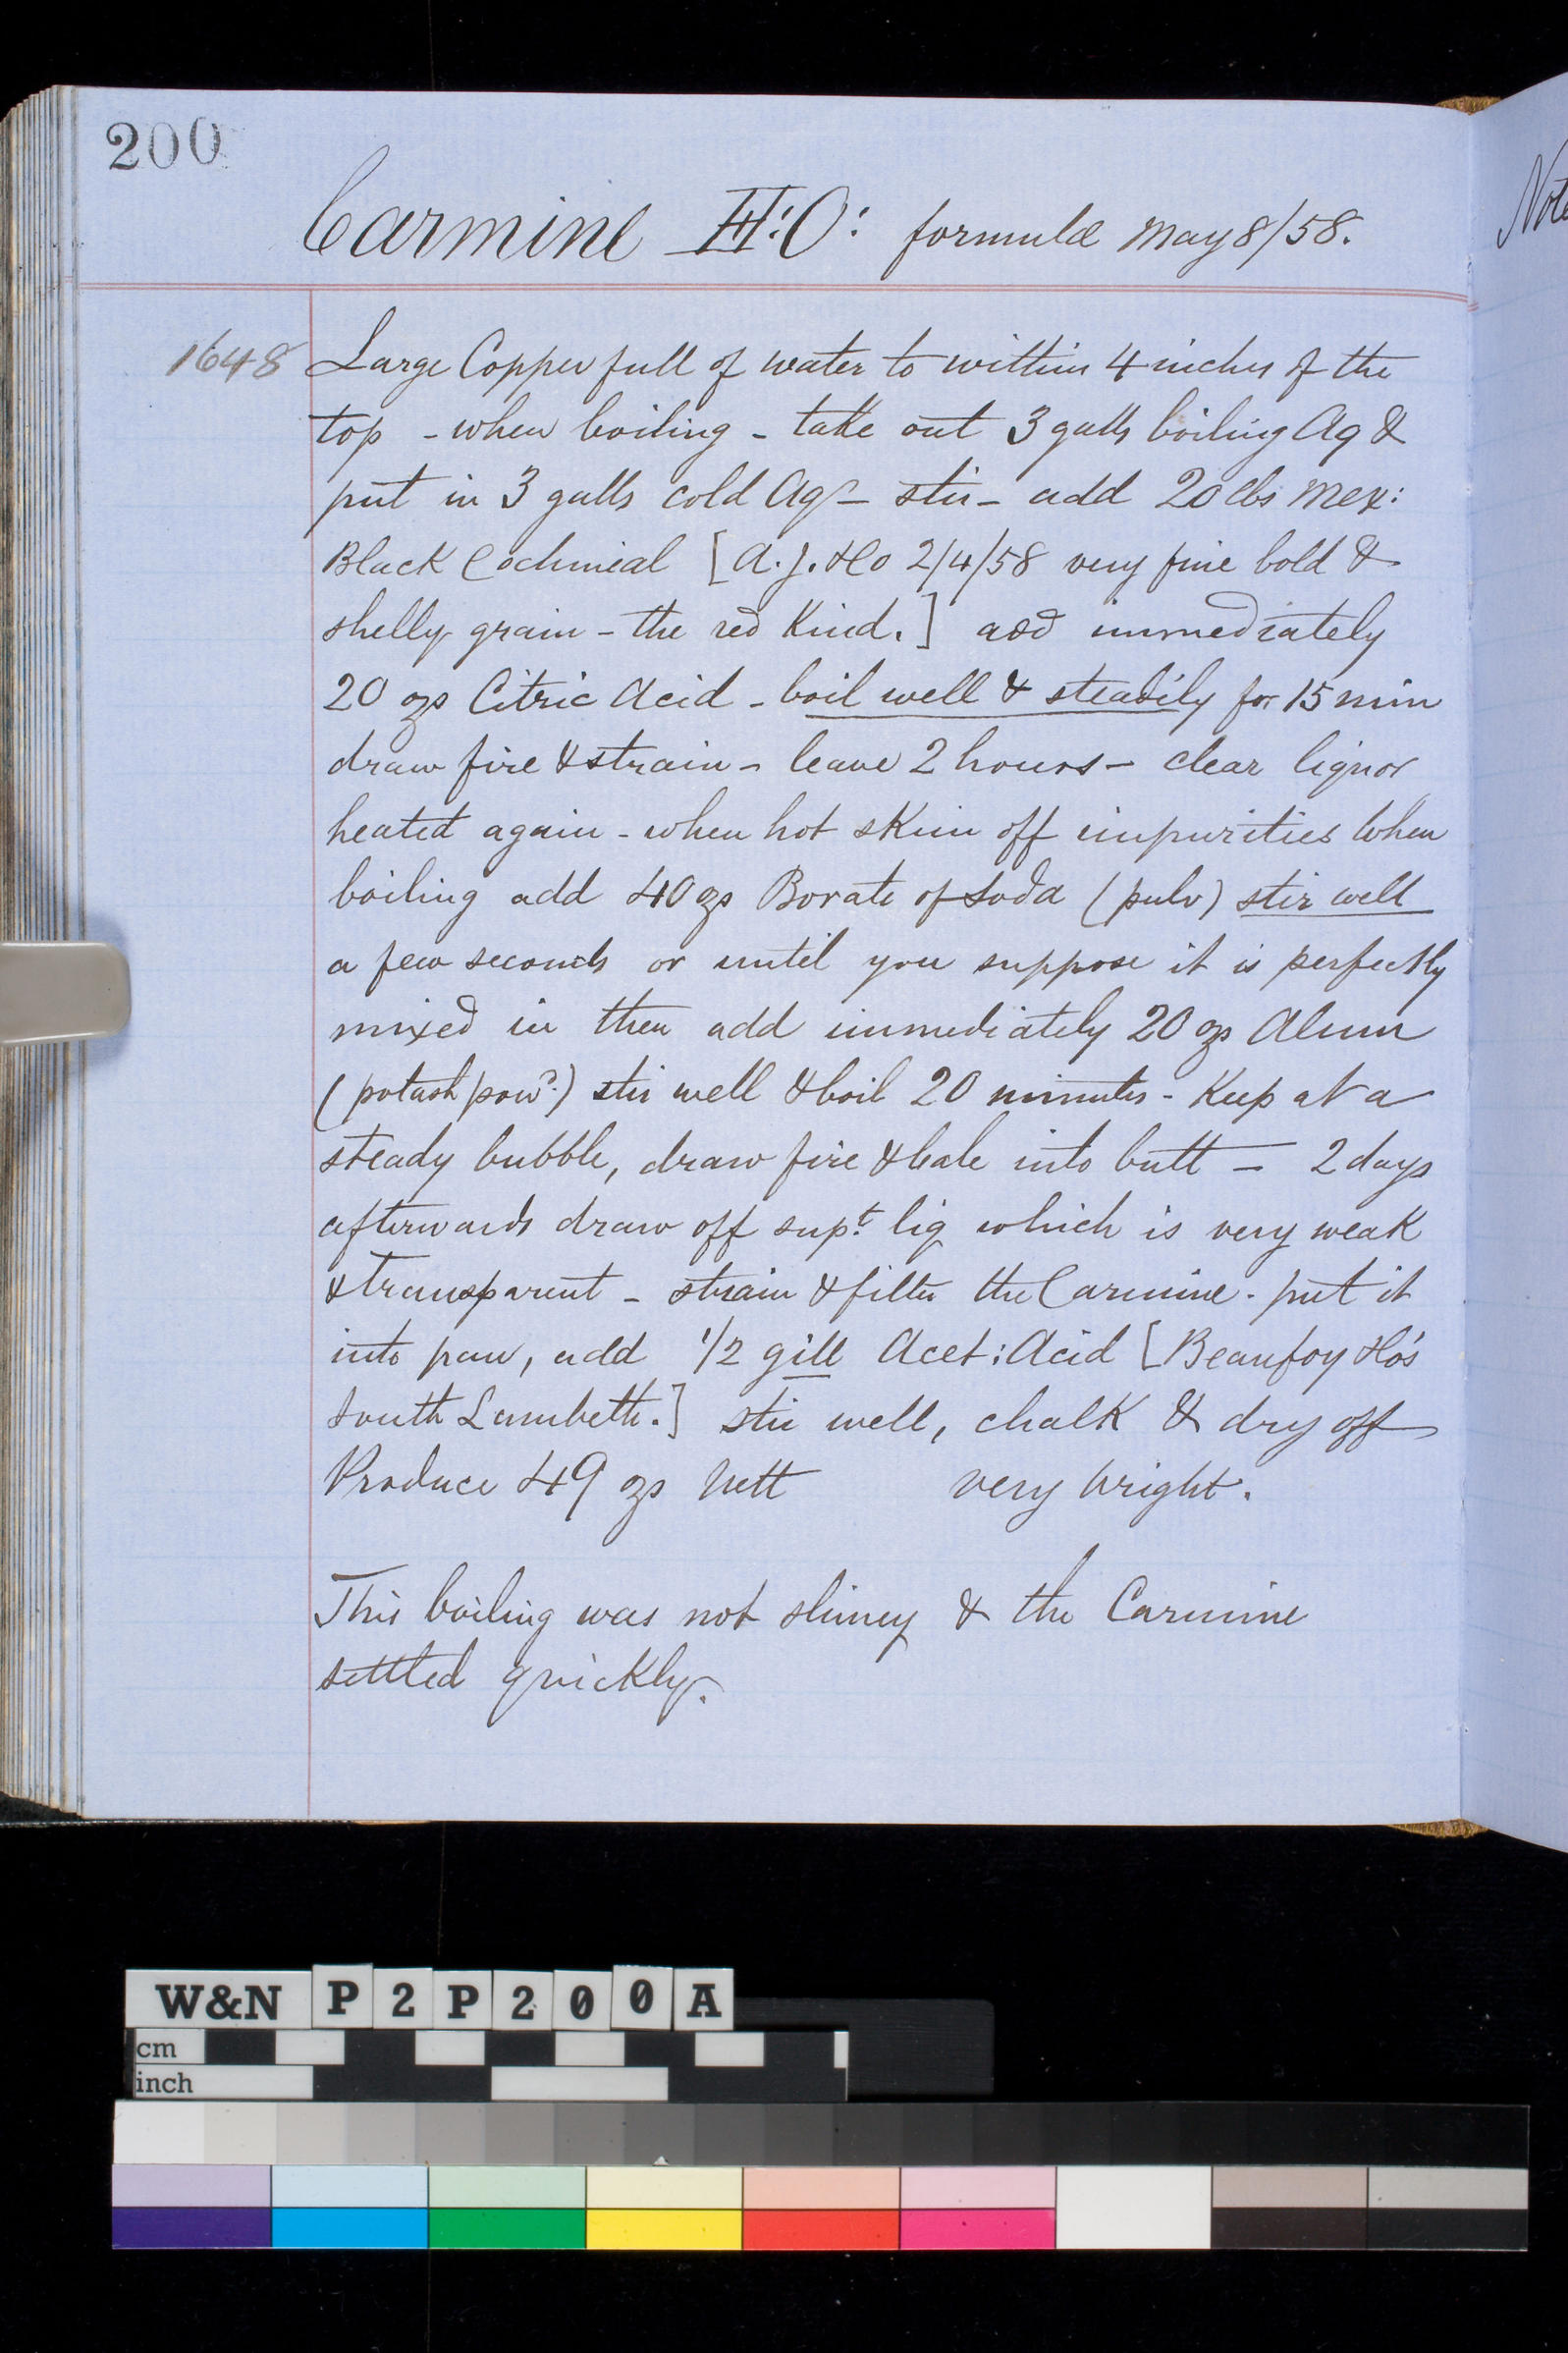 200
Carmine H:O: formulæ May 8/58.
Note
1648 Large Copper full of water to within 4 inches of the
top - when boiling - take out 3 galls boiling Aq &
put in 3 galls cold Aq - stir - add 20 lbs Mex:
Black Cochineal [A.J. & Co 2/4/58 very fine bold &
shelly grain - the red Kind.] add immediately
20 ozs Citric Acid - boil well & steadily for 15 min
draw fire & strain - leave 2 hours - clear liquor
heated again - when hot skim off impurities When
boiling add 40 ozs Borate of Soda (pulv) stir well
a few seconds or until you suppose it is perfectly
mixed in then add immediately 20 ozs Alum
(potash powd.) stir well & boil 20 minutes - Keep at a
steady bubble, draw fire & bale into butt - 2 days
afterwards draw off supt. liq which is very weak
& transparent - strain & filter the Carmine - put it
into pan, add 1/2 gill Acet: Acid [Beaufoy & Co's
South Lambeth.] stir well, chalk & dry off
Produce 49 ozs Nett very bright.
This boiling was not slimey & the Carmine
settled quickly.
W&N P2P200A
cm
inch